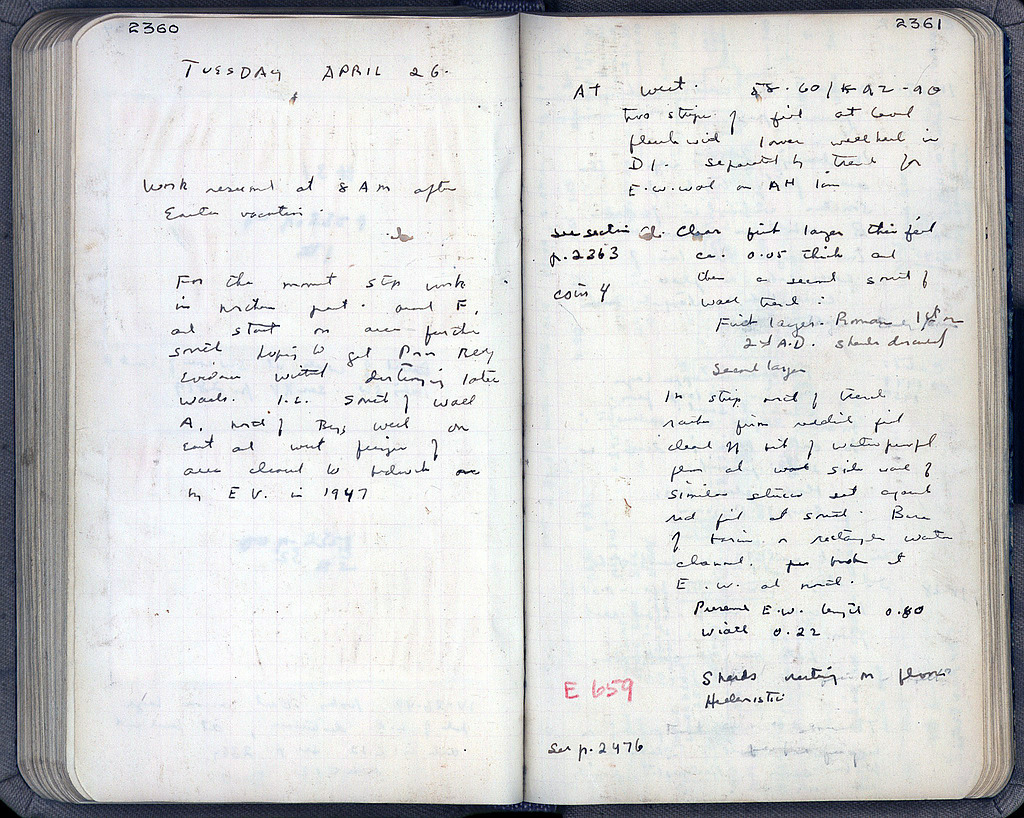 2360
TUESDAY APRIL 26.
Work resumed at 8 AM after
Easter vacation.
For the moment stop work
in northern part. and F,
and start on area further
south hoping to get Pre Rey
Evidence without destroying later
walls. I.E. South of wall
A, north of Byz well on
East and west fringes of
area cleared to bedrock
by E V. in 1947
2361
At west. 58-60/ 92-90
two strips of fill at level
flush with lower well head in
D1. Separated by trench for
E.W. wall on AH line
see section
p.2363
coin 4
Cl. Clear first layer this fill
ca. 0.05 thick and
then a second south of
wall trench:
First layer. Roman 1st or
2nd A.D. sherds discard
Second layer
In strip north of trench
rather firm reddish fill
cleared off bit of waterproof
floor and side wall of
similar stucco set against
red fill at south. Base
of basin or rectangular water
channel. broken at
E.W. and north.
Preserved E.W. length 0.80
width 0.22
Sherds resting on floor
Hellenistic
E 659
See p.2476